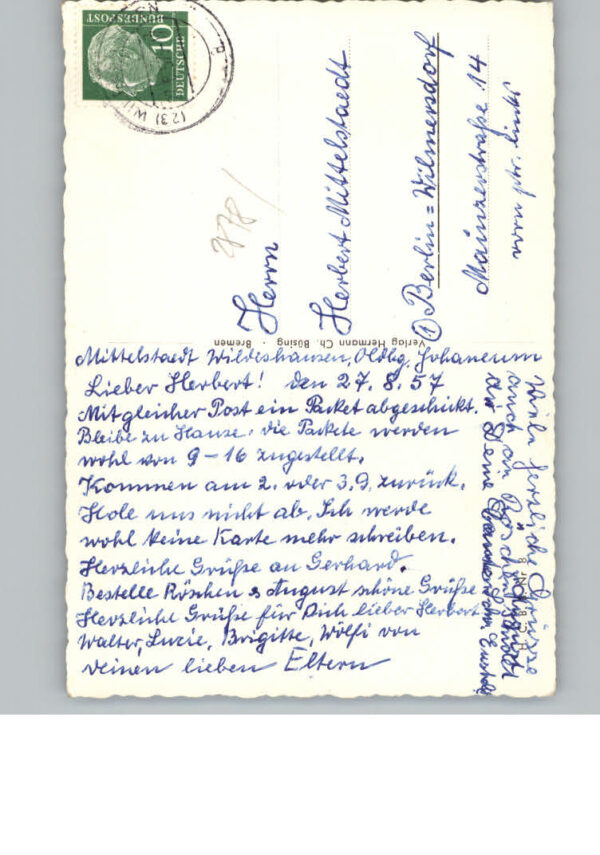 DEUTSCHE
BUNDESPOST
10
(23)
Herrn
Herbert Mittelstaedt
① Berlin=Wilmersdorf
Mainzerstraße 14
vorn ptr. links
Verlag Hermann Ch. Büsing · Bremen
Mittelstaedt Wildeshausen, Oldbg. Johaneum
Lieber Herbert! den 27. 8. 57
Mit gleicher Post ein Packet abgeschickt.
Bleibe zu Hause, die Packete werden
wohl von 9-16 zugestellt.
Kommen am 2. oder 3.9. zurück.
Hole uns nicht ab. Ich werde
wohl keine Karte mehr schreiben.
Herzliche Grüße an Gerhard.
Bestelle Röschen & August schöne Grüße
Herzliche Grüße für Dich lieber Herbert
Walter, Luzie, Brigitte, Wölfi von
Deinen lieben Eltern
Viele herzliche Grüsse
auch an Röschen